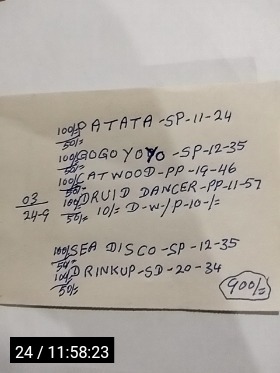 100/- PATATA-SP-11-24
50/-
100/- GOGO YOYO-SP-12-35
50/-
100/- CATWOOD-PP-19-46
50/-
100/- DRUID DANCER-PP-11-57
50/- 10/= D-W-/P-10-/=
03
24-9
100/- SEA DISCO-SP-12-35
50/-
100/- DRINKUP-SD-20-34
50/-
900/=
24 / 11:58:23